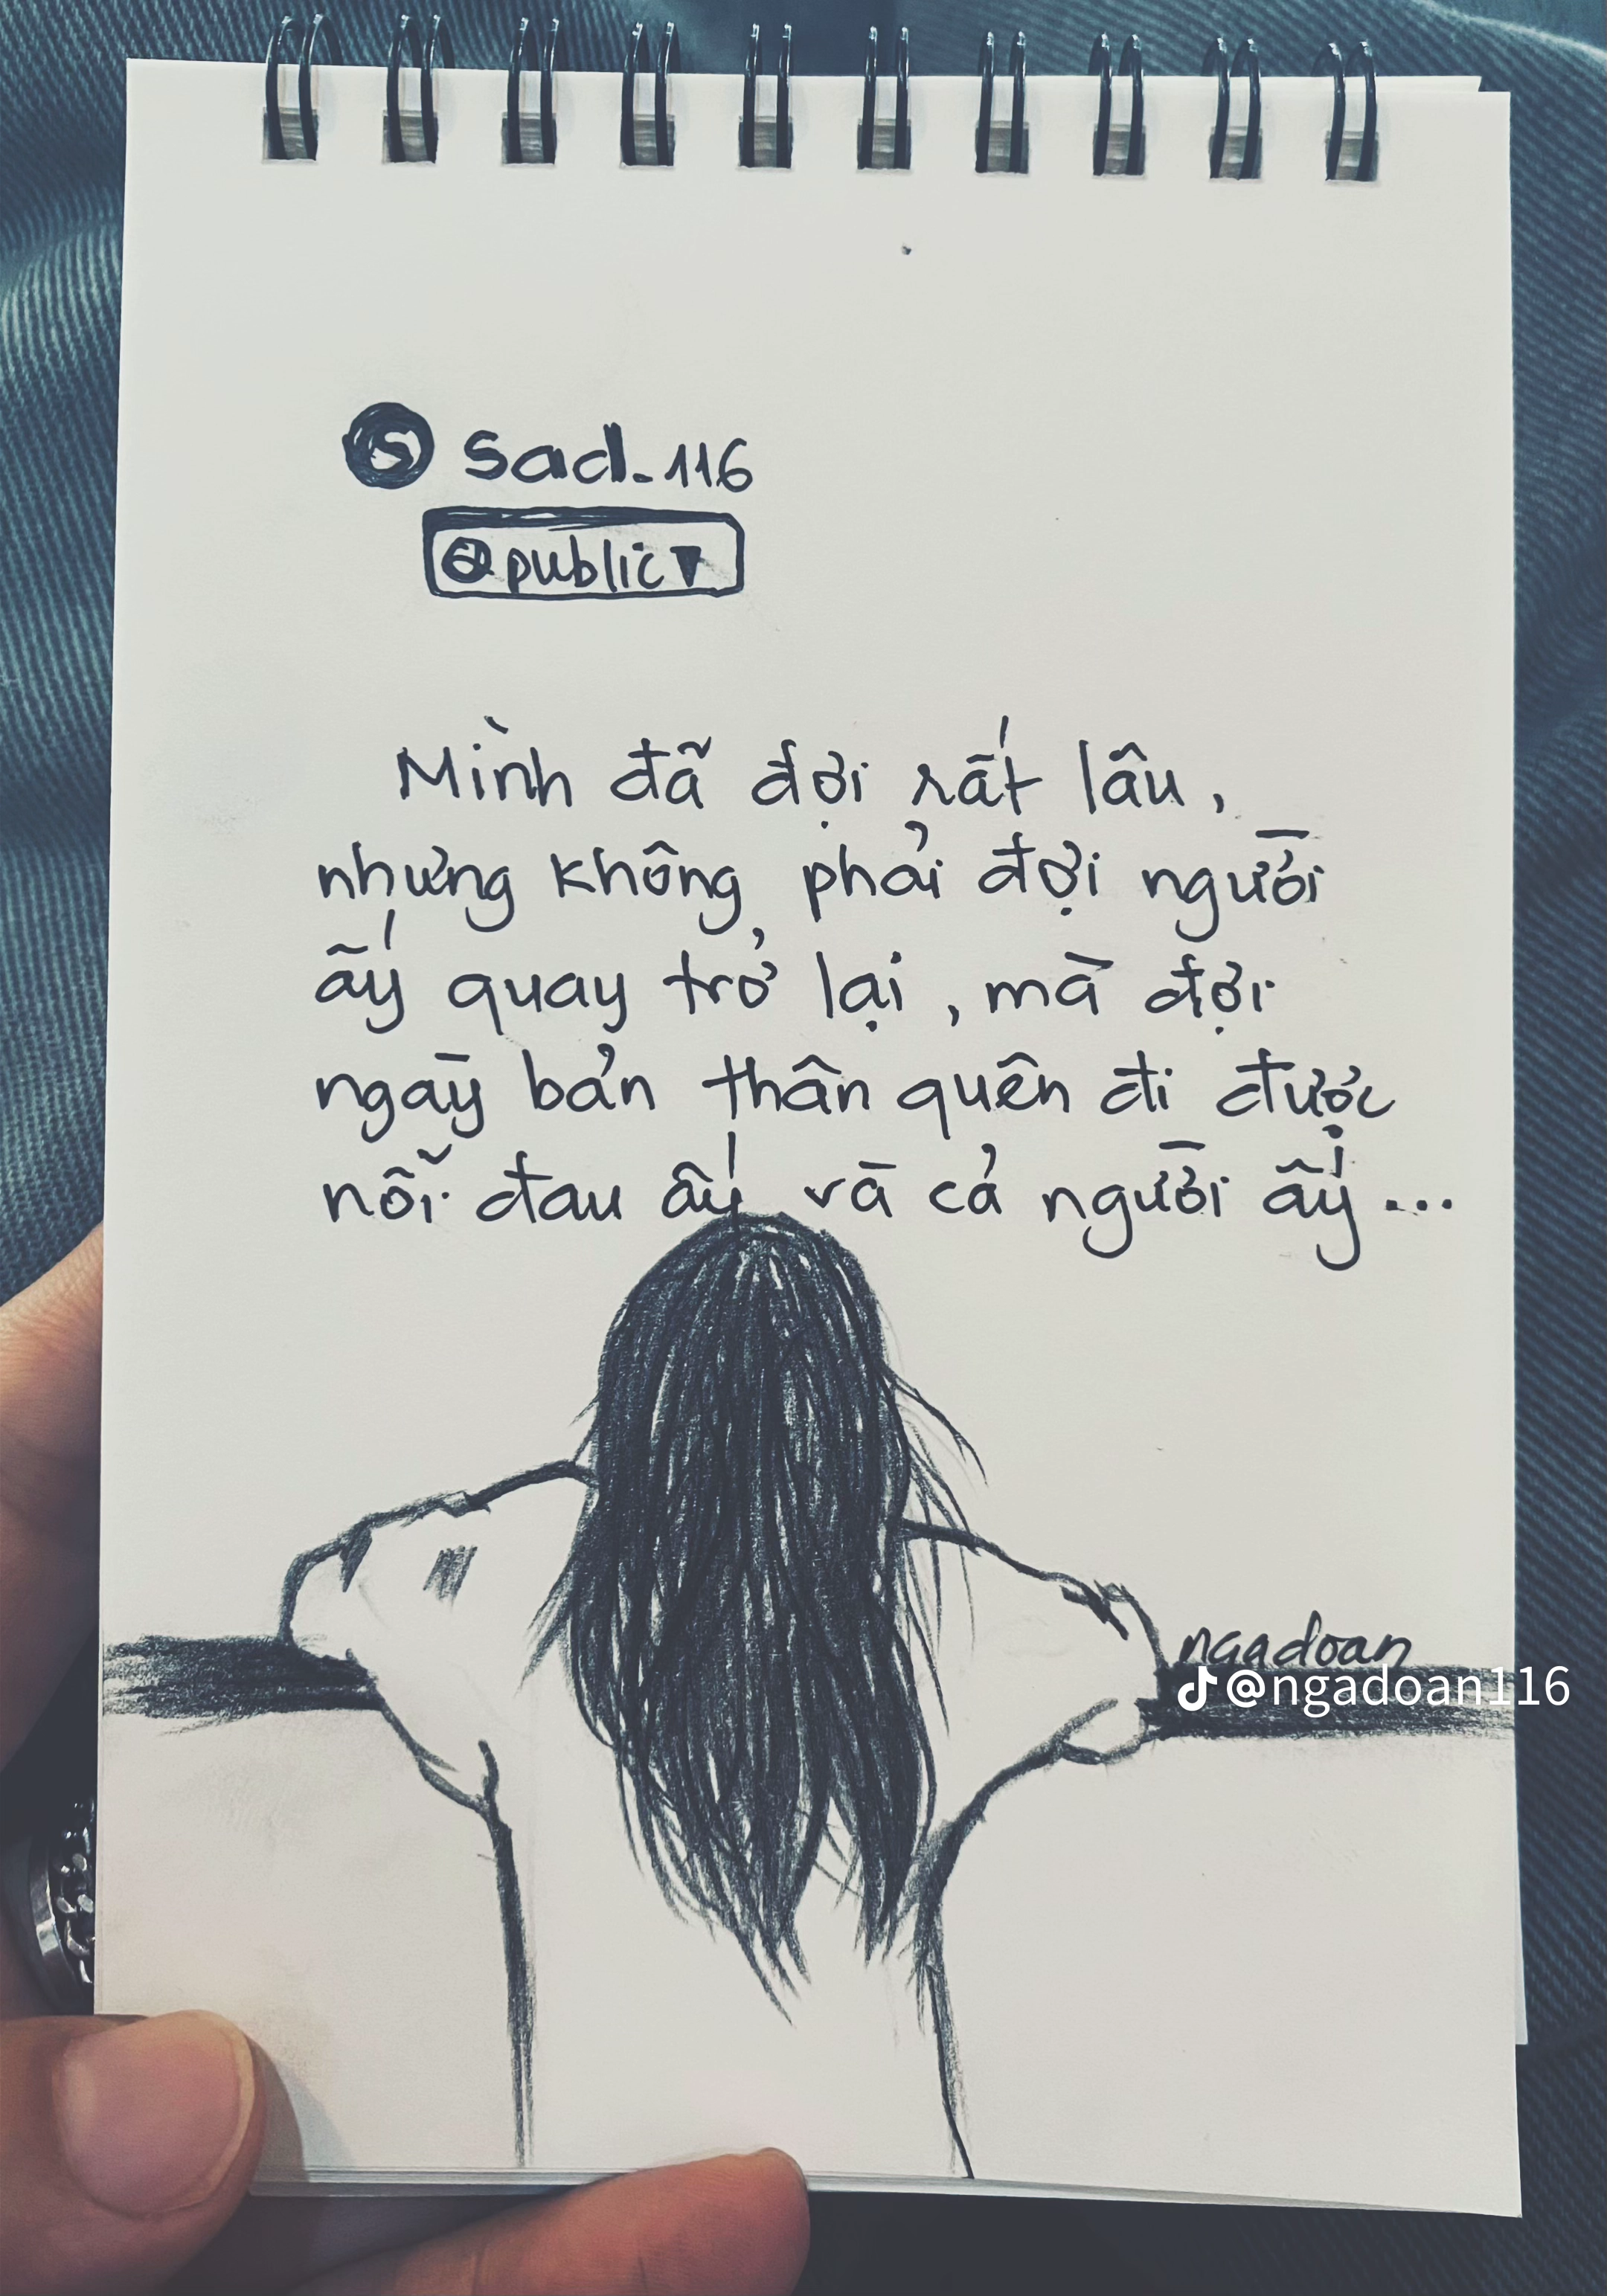 S sad_116
@public▼
Mình đã đợi rất lâu,
nhưng không phải đợi người
ấy quay trở lại, mà đợi
ngày bản thân quên đi được
nỗi đau ấy và cả người ấy...
ngadoan
@ngadoan116